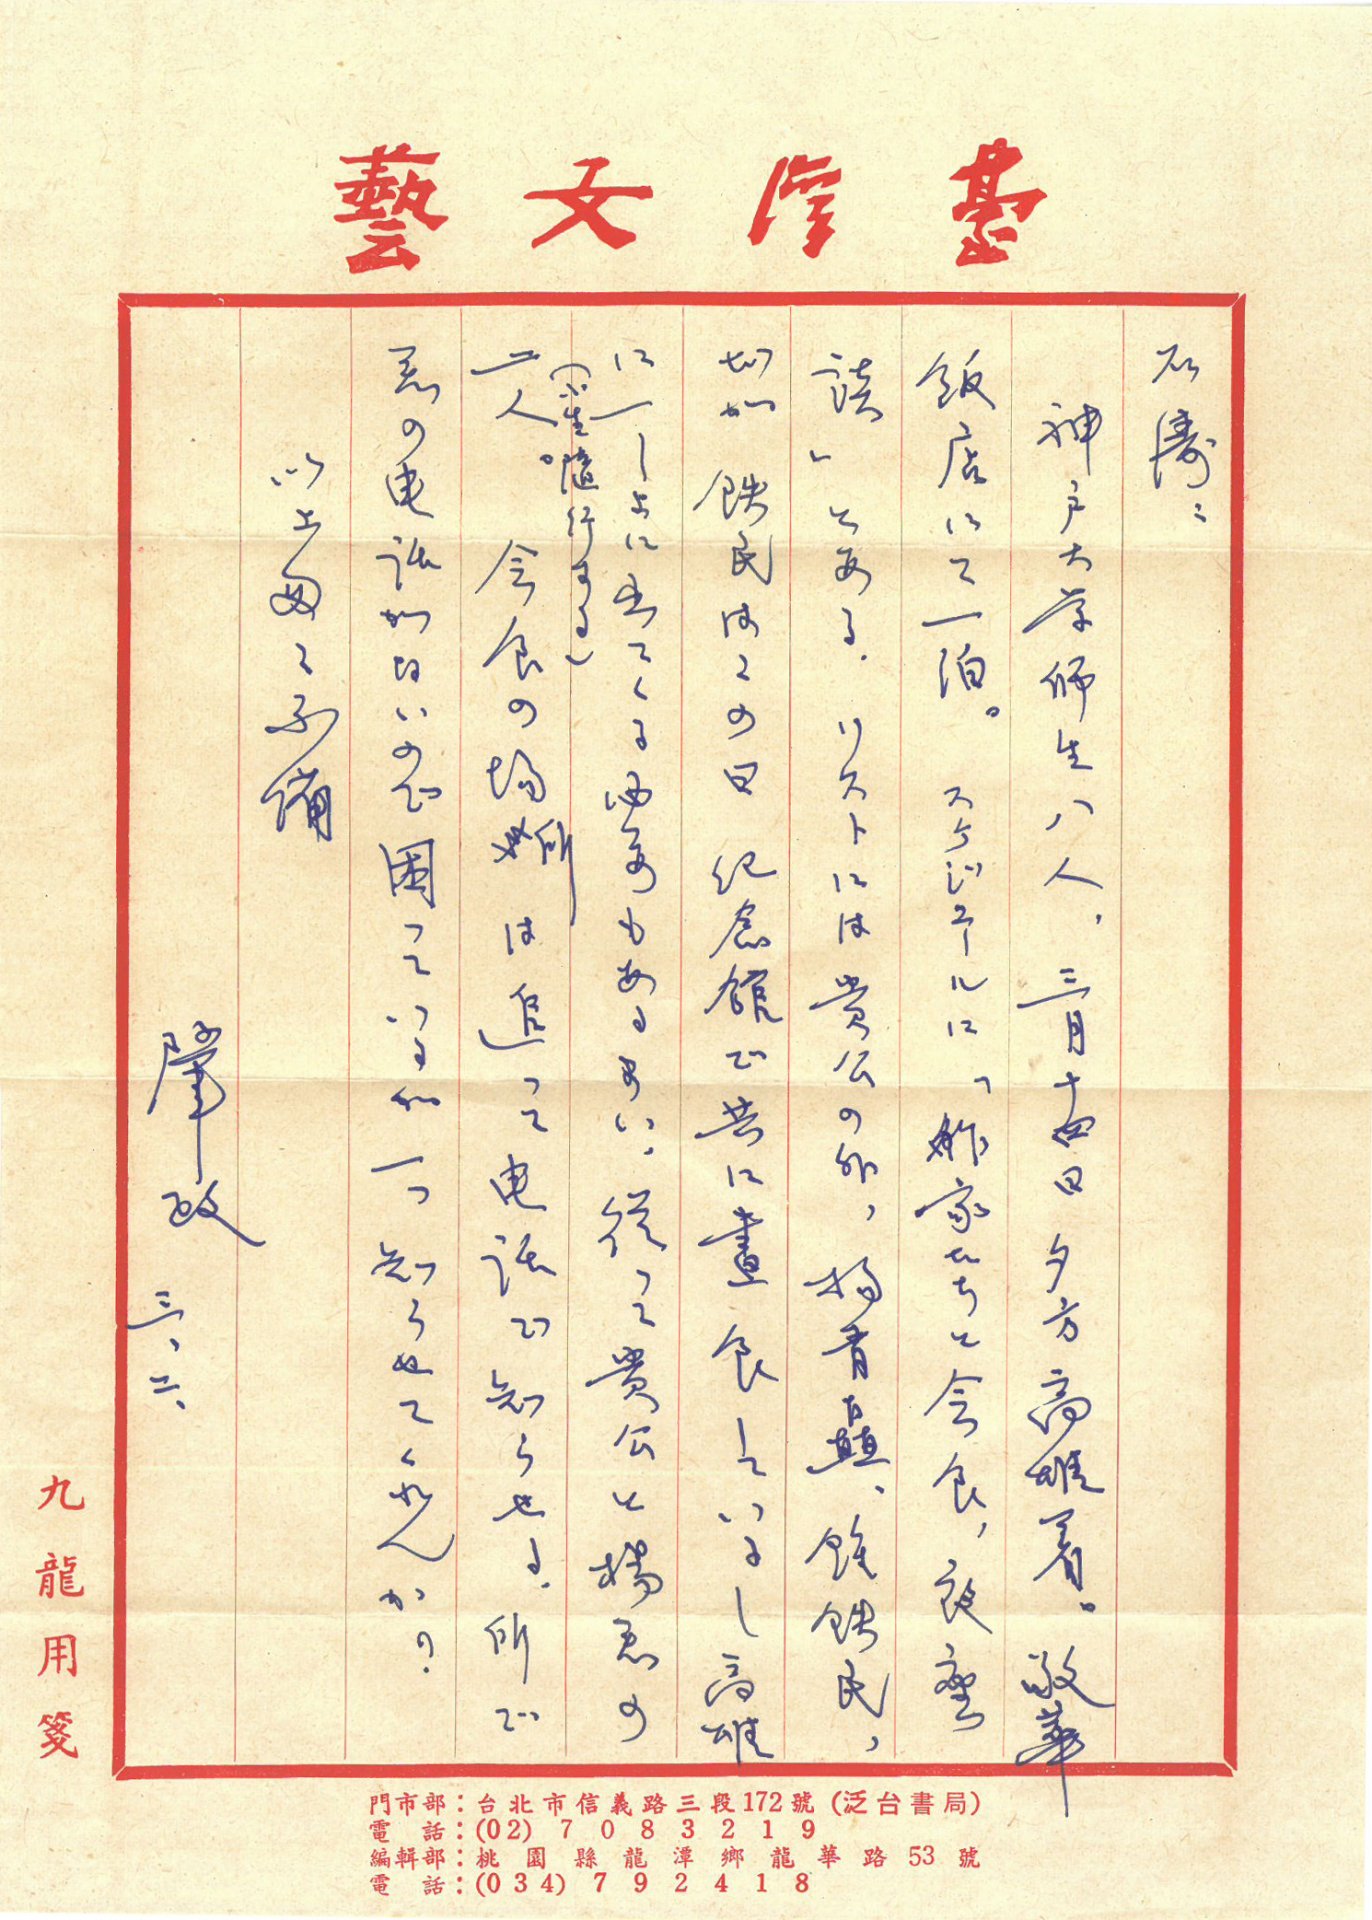 臺灣文藝
石濤:
神戸大学師生八人、三月十四日夕方高雄着。敬華
飯店にて一泊。スケジュールに「作家たちと会食、夜空
談」とある。リストには貴公の外、楊青矗、鍾鉄民、
鉄民はこの日紀念館で共に晝食しているし高雄
に一しょに出てくる必要もあるまい、従って貴公と楊君の
(小生随行する)
二人。会食の場所は追って电話で知らせる、所で
君の电話がないので困っているが一つ知らせてくれんかの?
以上匆々不備
肇政 三、六、
九龍用箋
門市部:台北市信義路三段172號(泛台書局)
電話:(02)7083219
編輯部:桃園縣龍潭鄉龍華路53號
電話:(034)792418